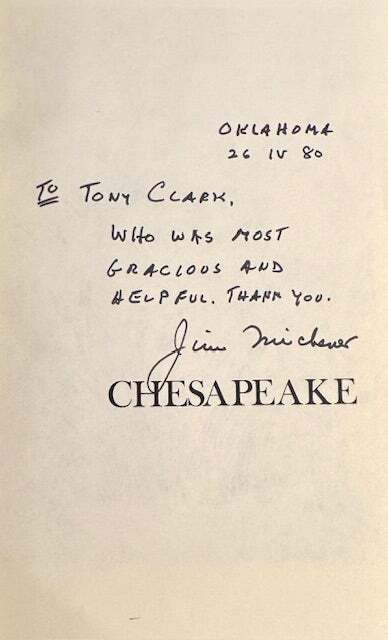 OKLAHOMA
26 IV 80
TO TONY CLARK,
WHO WAS MOST
GRACIOUS AND
HELPFUL. THANK YOU.
Jim Michener
CHESAPEAKE